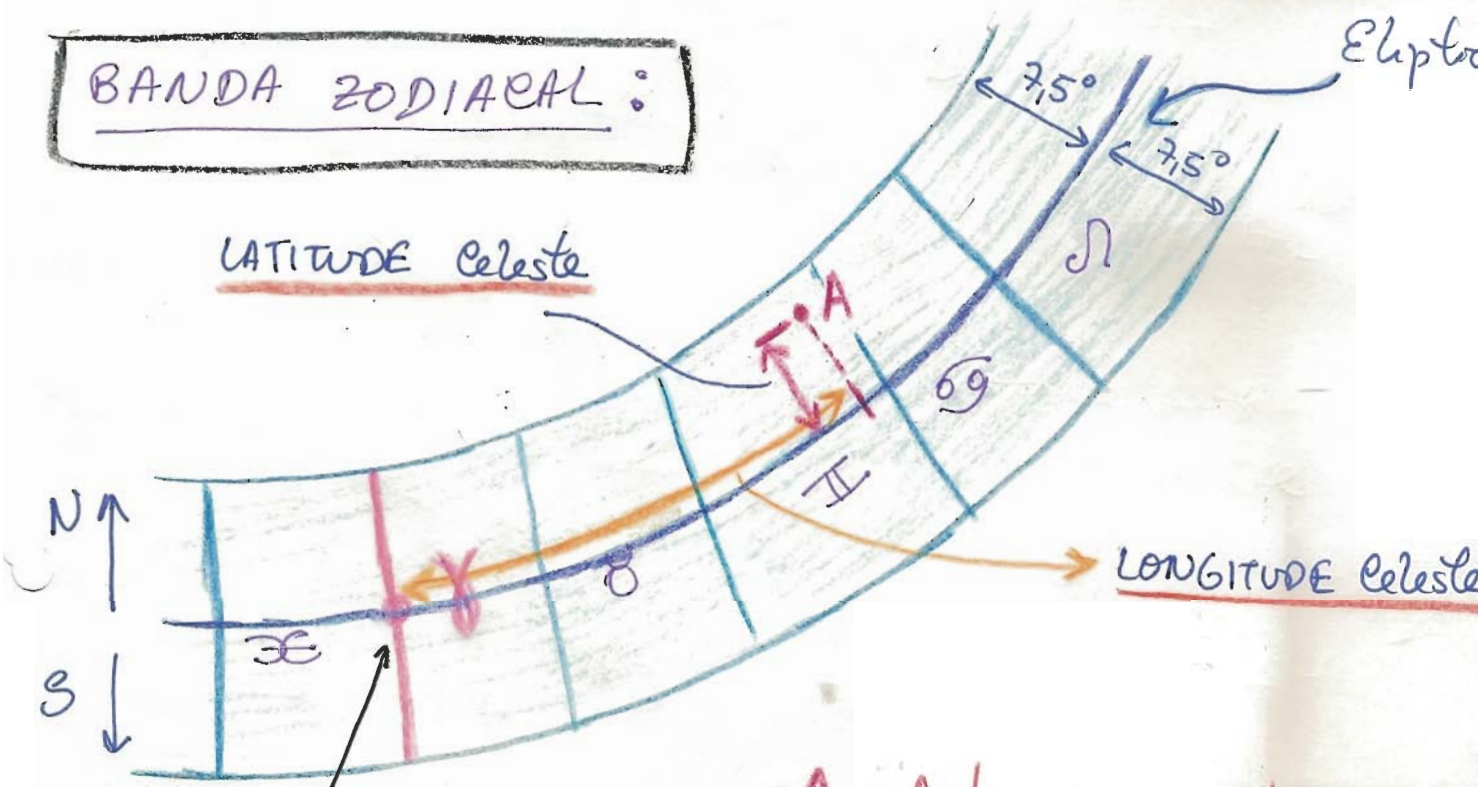 BANDA ZODIACAL :
7,5°
7,5°
LATITUDE Celeste
A
♌
♋
♊
N
♈
♉
LONGITUDE Celeste
♓
S